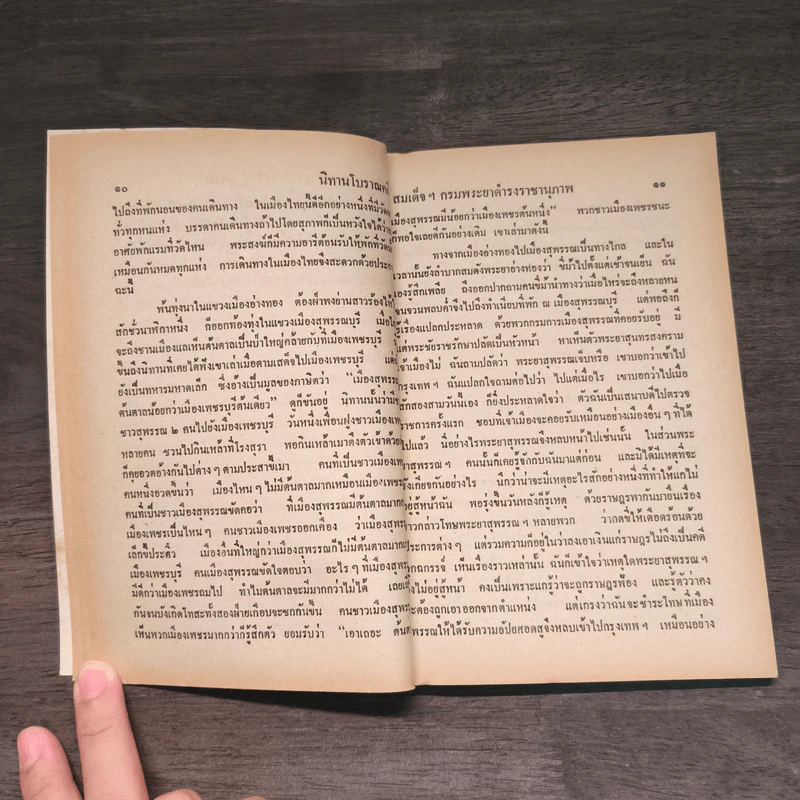 ๑๐
นิทานโบราณคดี
ไปถึงที่พักนอนของคนเดินทาง ในเมืองไทยนี้ดีอีกอย่างหนึ่งที่มีวัด
ทั่วทุกหนแห่ง บรรดาคนเดินทางถ้าไปโดยสุภาพก็เป็นหวังใจได้ว่า
อาศัยพักแรมที่วัดไหน พระสงฆ์ก็มีความอารีต้อนรับให้พักที่วัด
เหมือนกันหมดทุกแห่ง การเดินทางในเมืองไทยจึงสะดวกด้วยประการ
ฉะนี้
พ้นทุ่งนาในแขวงเมืองอ่างทอง ต้องฝ่าพงย่านสาวร้องไห้
สักชั่วนาฬิกาหนึ่ง ก็ออกท้องทุ่งในแขวงเมืองสุพรรณบุรี เมื่อ
จะถึงชานเมืองแลเห็นต้นตาลเป็นป่าใหญ่คล้ายกับที่เมืองเพชรบุรี
ขึ้นถึงนิทานที่เคยได้ฟังเขาเล่าเมื่อตามเสด็จไปเมืองเพชรบุรี แต่
ยังเป็นทหารมหาดเล็ก ซึ่งอ้างเป็นมูลของภาษิตว่า “เมืองสุพรรณ
ต้นตาลน้อยกว่าเมืองเพชรบุรีต้นเดียว” ดูก็ขันอยู่ นิทานนั้นว่า
ชาวสุพรรณ ๒ คนไปยังเมืองเพชรบุรี วันหนึ่งเพื่อนฝูงชาวเมือง
หลายคน ชวนไปกินเหล้าที่โรงสุรา พอกินเหล้าเมาตึงตัวเข้าด้วย
ก็คุยอวดอ้างกันไปต่าง ๆ ตามประสาขี้เมา คนที่เป็นชาวเมือง
คนหนึ่งอวดขึ้นว่า เมืองไหน ๆ ไม่มีต้นตาลมากเหมือนเมือง
คนที่เป็นชาวเมืองสุพรรณขัดคอว่า ที่เมืองสุพรรณมีต้นตาลมาก
เมืองเพชรเป็นไหน ๆ คนชาวเมืองเพชรออกเคือง ว่าเมืองสุพรรณ
เล็กขี้ประติ๋ว เมืองอื่นที่ใหญ่กว่าเมืองสุพรรณก็ไม่มีต้นตาลมาก
เมืองเพชรบุรี คนเมืองสุพรรณขัดใจตอบว่า อะไร ๆ ที่เมือง
มีดีกว่าเมืองเพชรถมไป ทำไมต้นตาลจะมีมากกว่าไม่ได้ เลย
กันจนบังเกิดโทสะทั้งสองฝ่ายเกือบจะชกกันขึ้น คนชาวเมือง
เห็นพวกเมืองเพชรมากกว่าก็รู้สึกตัว ยอมรับว่า “เอาเถอะ ต้น
สมเด็จ ฯ กรมพระยาดำรงราชานุภาพ
๑๑
เมืองสุพรรณมีน้อยกว่าเมืองเพชรต้นหนึ่ง” พวกชาวเมืองเพชรชนะ
ก็พอใจเลยดีกันอย่างเดิม เขาเล่ามาดังนี้
ทางจากเมืองอ่างทองไปเมืองสุพรรณเป็นทางไกล และใน
เวลานั้นยังลำบากสมดังพระยาอ่างทองว่า ขี่ม้าไปตั้งแต่เช้าจนเย็น ฉัน
เองรู้สึกเพลีย ถึงออกปากถามคนขี่ม้านำทางว่าเมื่อไหร่จะถึงหลายหน
จนจวนพลบค่ำจึงไปถึงทำเนียบที่พัก ณ เมืองสุพรรณบุรี แต่พอถึงก็
รู้เรื่องแปลกประหลาด ด้วยพวกกรมการเมืองสุพรรณที่คอยรับอยู่ มี
แต่พระชัยราชรักษาปลัดเป็นหัวหน้า หาเห็นตัวพระยาสุนทรสงคราม
เจ้าเมืองไม่ ฉันถามปลัดว่า พระยาสุพรรณเจ็บหรือ เขาบอกว่าเข้าไป
กรุงเทพ ฯ ฉันแปลกใจถามต่อไปว่า ไปแต่เมื่อไร เขาบอกว่าไปเมื่อ
สักสองสามวันนี้เอง ก็ยิ่งประหลาดใจว่า ตัวฉันเป็นเสนาบดีไปตรวจ
ราชการครั้งแรก ชอบที่เจ้าเมืองจะคอยรับเหมือนอย่างเมืองอื่น ๆ ที่ได้
ไปแล้ว นี่อย่างไรพระยาสุพรรณจึงหลบหน้าไปเช่นนั้น ในส่วนพระ
ยาสุพรรณ ฯ คนนั้นก็เคยรู้จักกับฉันมาแต่ก่อน และมิได้มีเหตุที่จะ
รังเกียจกันอย่างไร นึกว่าน่าจะมีเหตุอะไรสักอย่างหนึ่งที่ทำให้แกไม่
อยู่สู้หน้าฉัน พอรุ่งขึ้นวันหลังก็รู้เหตุ ด้วยราษฎรพากันมายื่นเรื่อง
ราวกล่าวโทษพระยาสุพรรณ ฯ หลายพวก ว่ากดขี่ให้เดือดร้อนด้วย
ประการต่าง ๆ แต่รวมความก็อยู่ในว่าลงเอาเงินแก่ราษฎรไม่ถึงเป็นคดี
อุกฉกรรจ์ เห็นเรื่องราวเหล่านั้น ฉันก็เข้าใจว่าเหตุใดพระยาสุพรรณ ฯ
จึงไม่อยู่สู้หน้า คงเป็นเพราะแกรู้ว่าจะถูกราษฎรฟ้อง และรู้ตัวว่าคง
จะต้องถูกเอาออกจากตำแหน่ง แต่เกรงว่าฉันจะชำระโทษที่เมือง
สุพรรณให้ได้รับความอัปยศอดสูจึงหลบเข้าไปกรุงเทพ ฯ เหมือนอย่าง